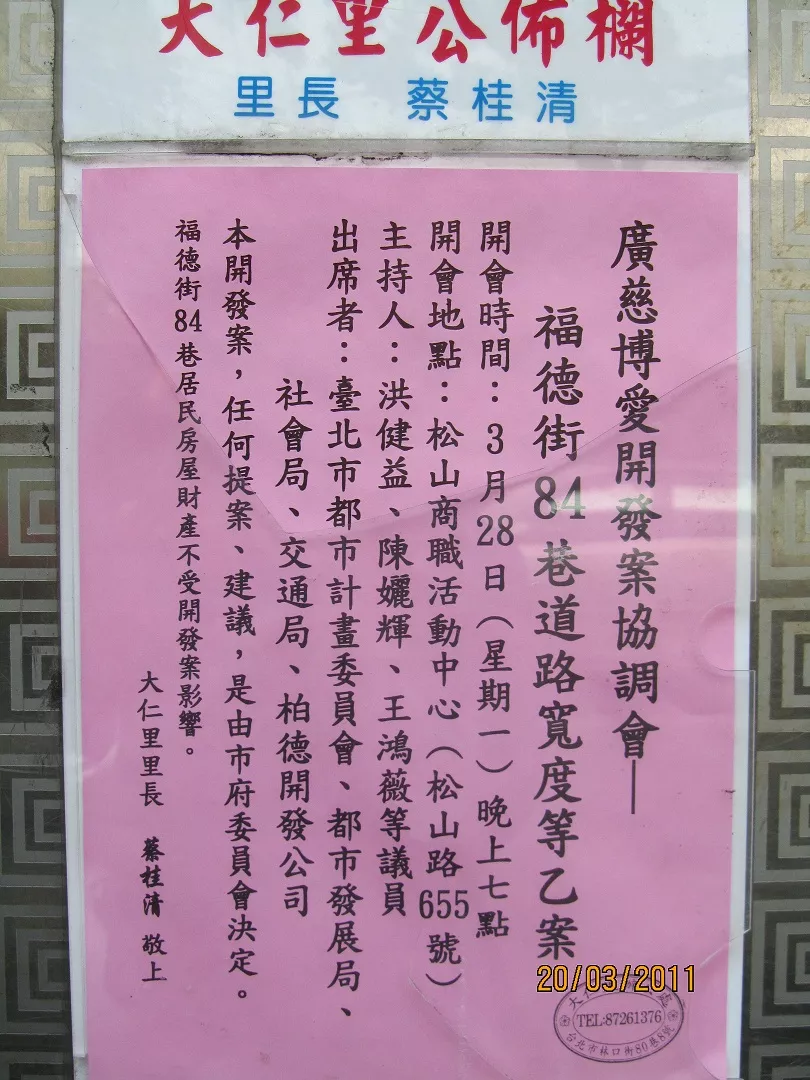 大仁里公佈欄
里長 蔡桂清
廣慈博愛開發案協調會—
福德街84巷道路寬度等乙案
開會時間：3月28日（星期一）晚上七點
開會地點：松山商職活動中心（松山路655號）
主持人：洪健益、陳孋輝、王鴻薇等議員
出席者：臺北市都市計畫委員會、都市發展局、
社會局、交通局、柏德開發公司
本開發案，任何提案、建議，是由市府委員會決定。
福德街84巷居民房屋財產不受開發案影響。
大仁里里長 蔡桂清 敬上
20/03/2011
大仁
TEL:87261376
台北市林口街80巷8號